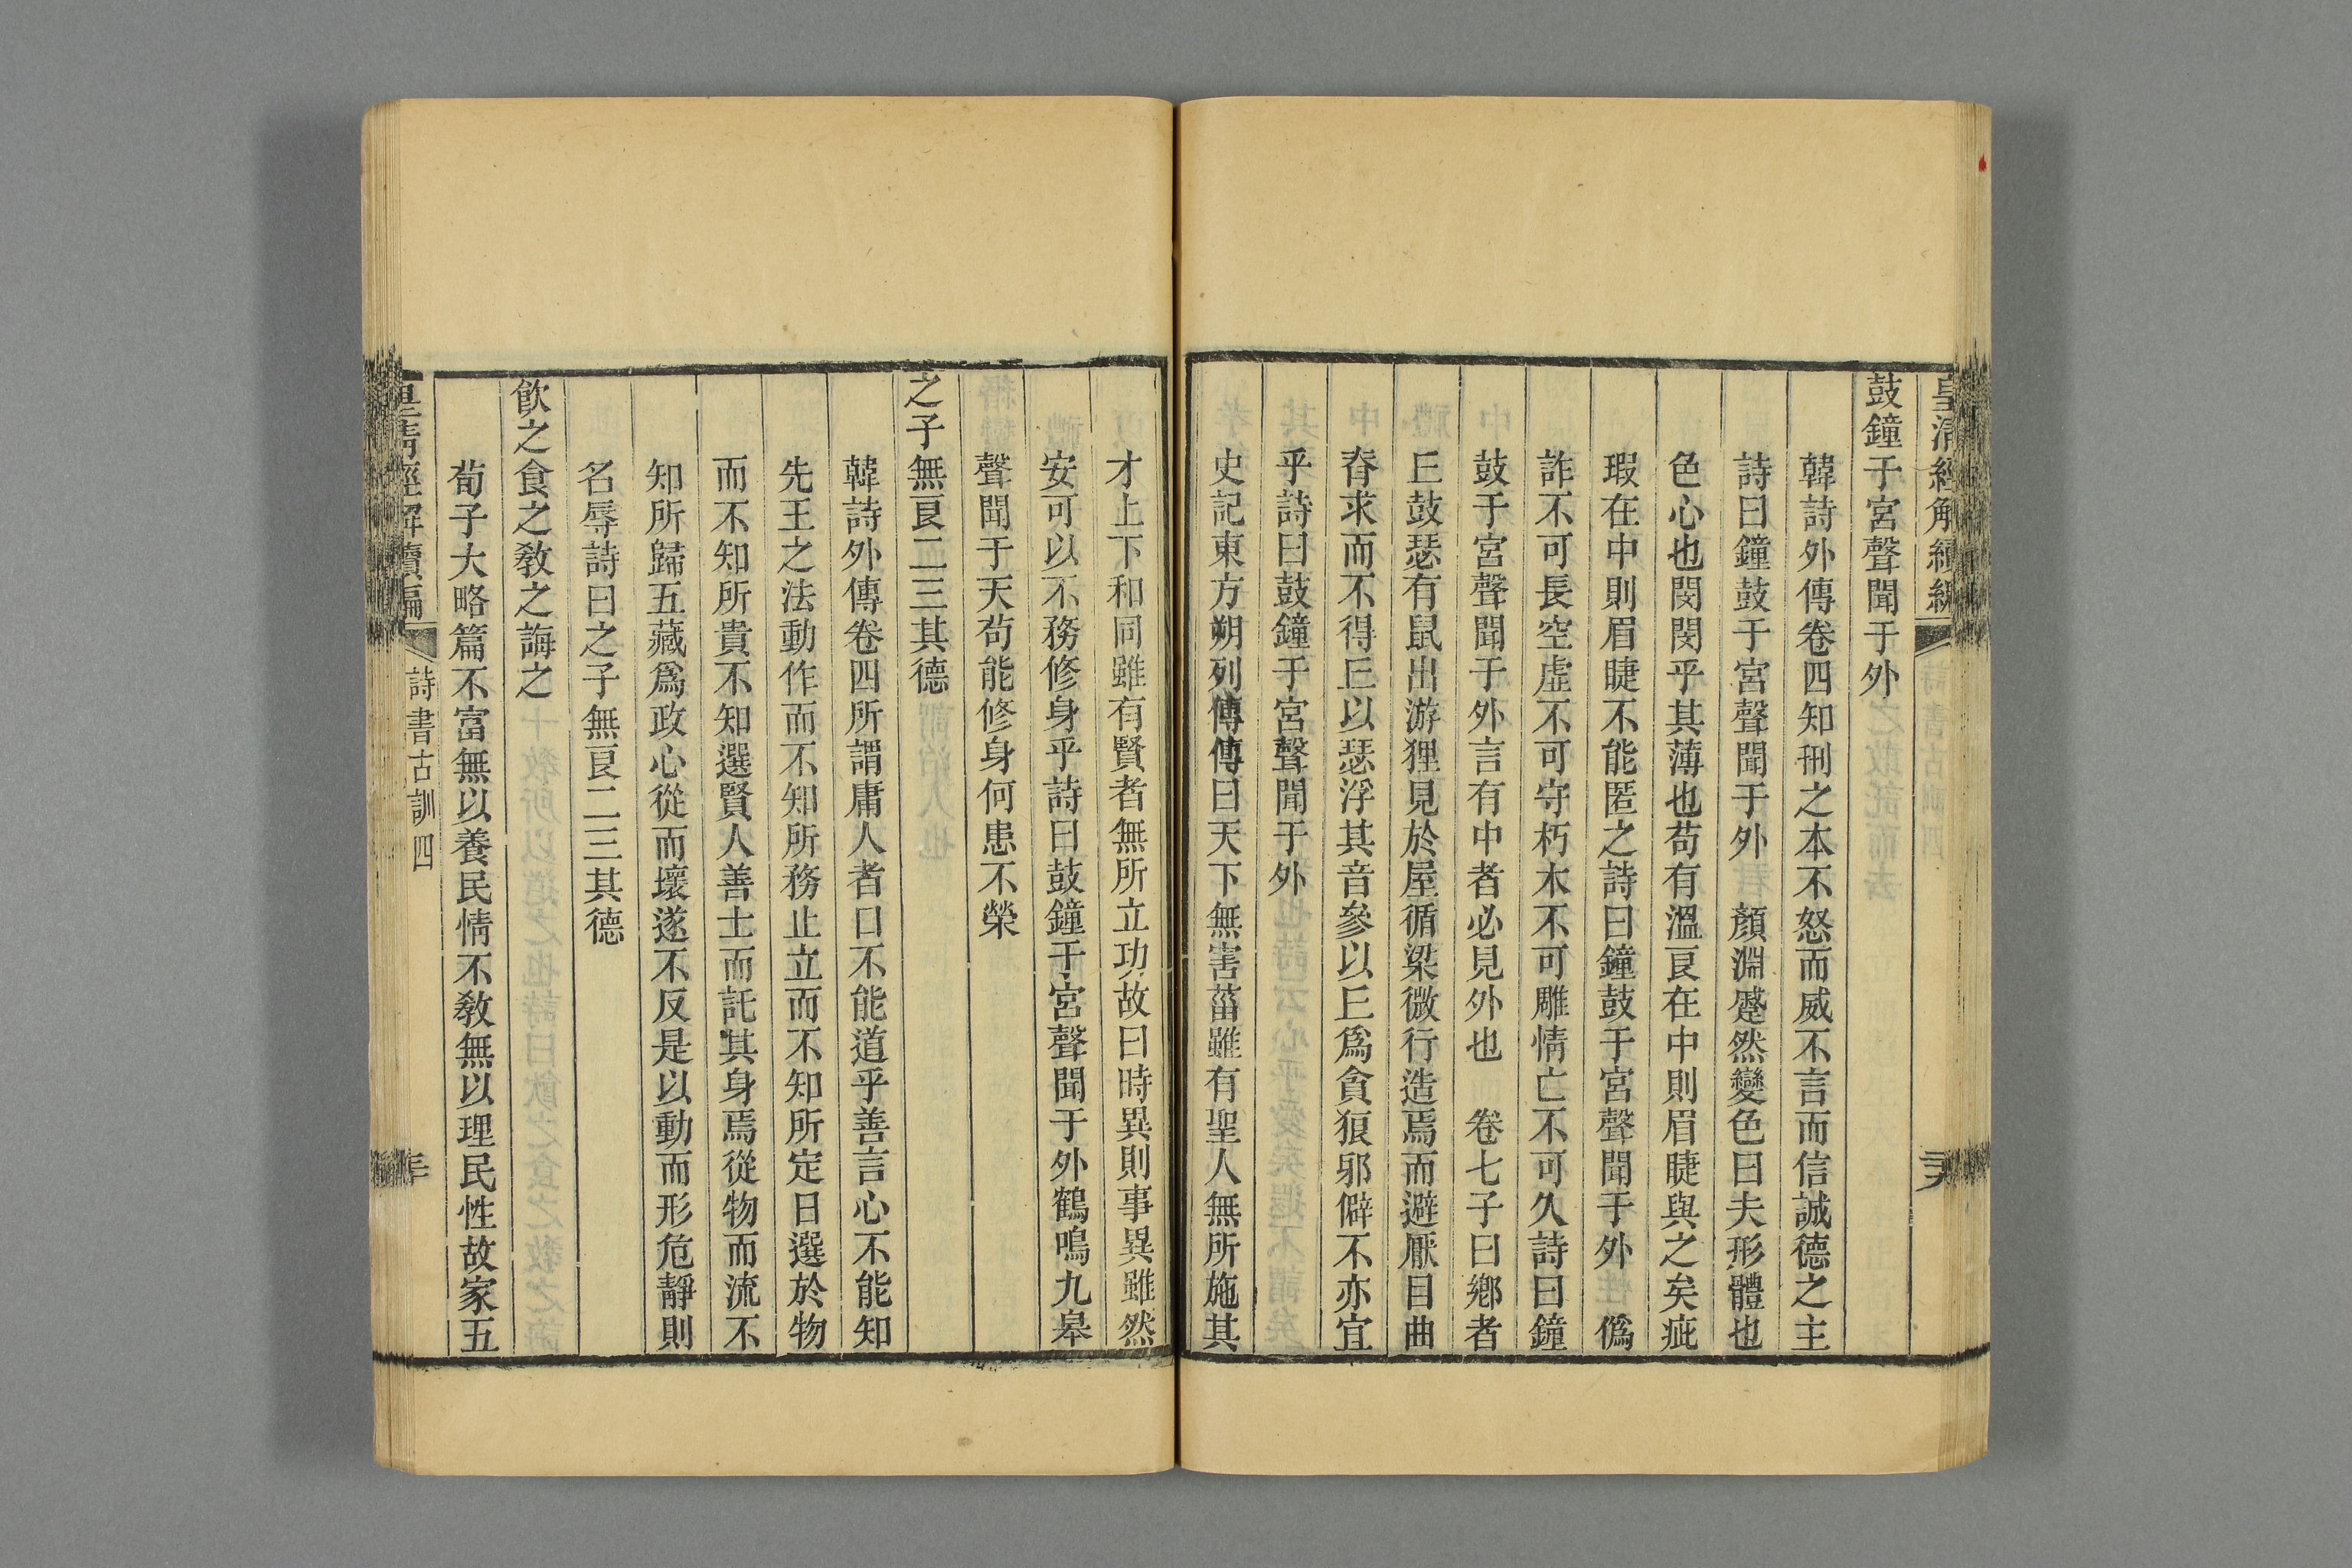 皇清經解續編
鼓鐘于宮聲聞于外
韓詩外傳卷四知刑之本不怒而威不言而信誠德之主
詩曰鐘鼓于宮聲聞于外 顏淵蹙然變色曰夫形體也
色心也閔閔乎其薄也苟有溫良在中則眉睫與之矣疵
瑕在中則眉睫不能匿之詩曰鐘鼓于宮聲聞于外 僞
詐不可長空虛不可守朽木不可雕情亡不可久詩曰鐘
鼓于宮聲聞于外言有中者必見外也 卷七子曰鄉者
丘鼓瑟有鼠出游狸見於屋循梁微行造焉而避厭目曲
脊求而不得丘以瑟浮其音參以丘爲貪狼邪僻不亦宜
乎詩曰鼓鐘于宮聲聞于外
史記東方朔列傳傳曰天下無害菑雖有聖人無所施其
才上下和同雖有賢者無所立功故曰時異則事異雖然
安可以不務修身乎詩曰鼓鐘于宮聲聞于外鶴鳴九皋
聲聞于天苟能修身何患不榮
之子無良二三其德
韓詩外傳卷四所謂庸人者口不能道乎善言心不能知
先王之法動作而不知所務止立而不知所定日選於物
而不知所貴不知選賢人善士而託其身焉從物而流不
知所歸五藏爲政心從而壞遂不反是以動而形危靜則
名辱詩曰之子無良二三其德
飮之食之敎之誨之
荀子大略篇不富無以養民情不敎無以理民性故家五
皇清經解續編 詩書古訓四